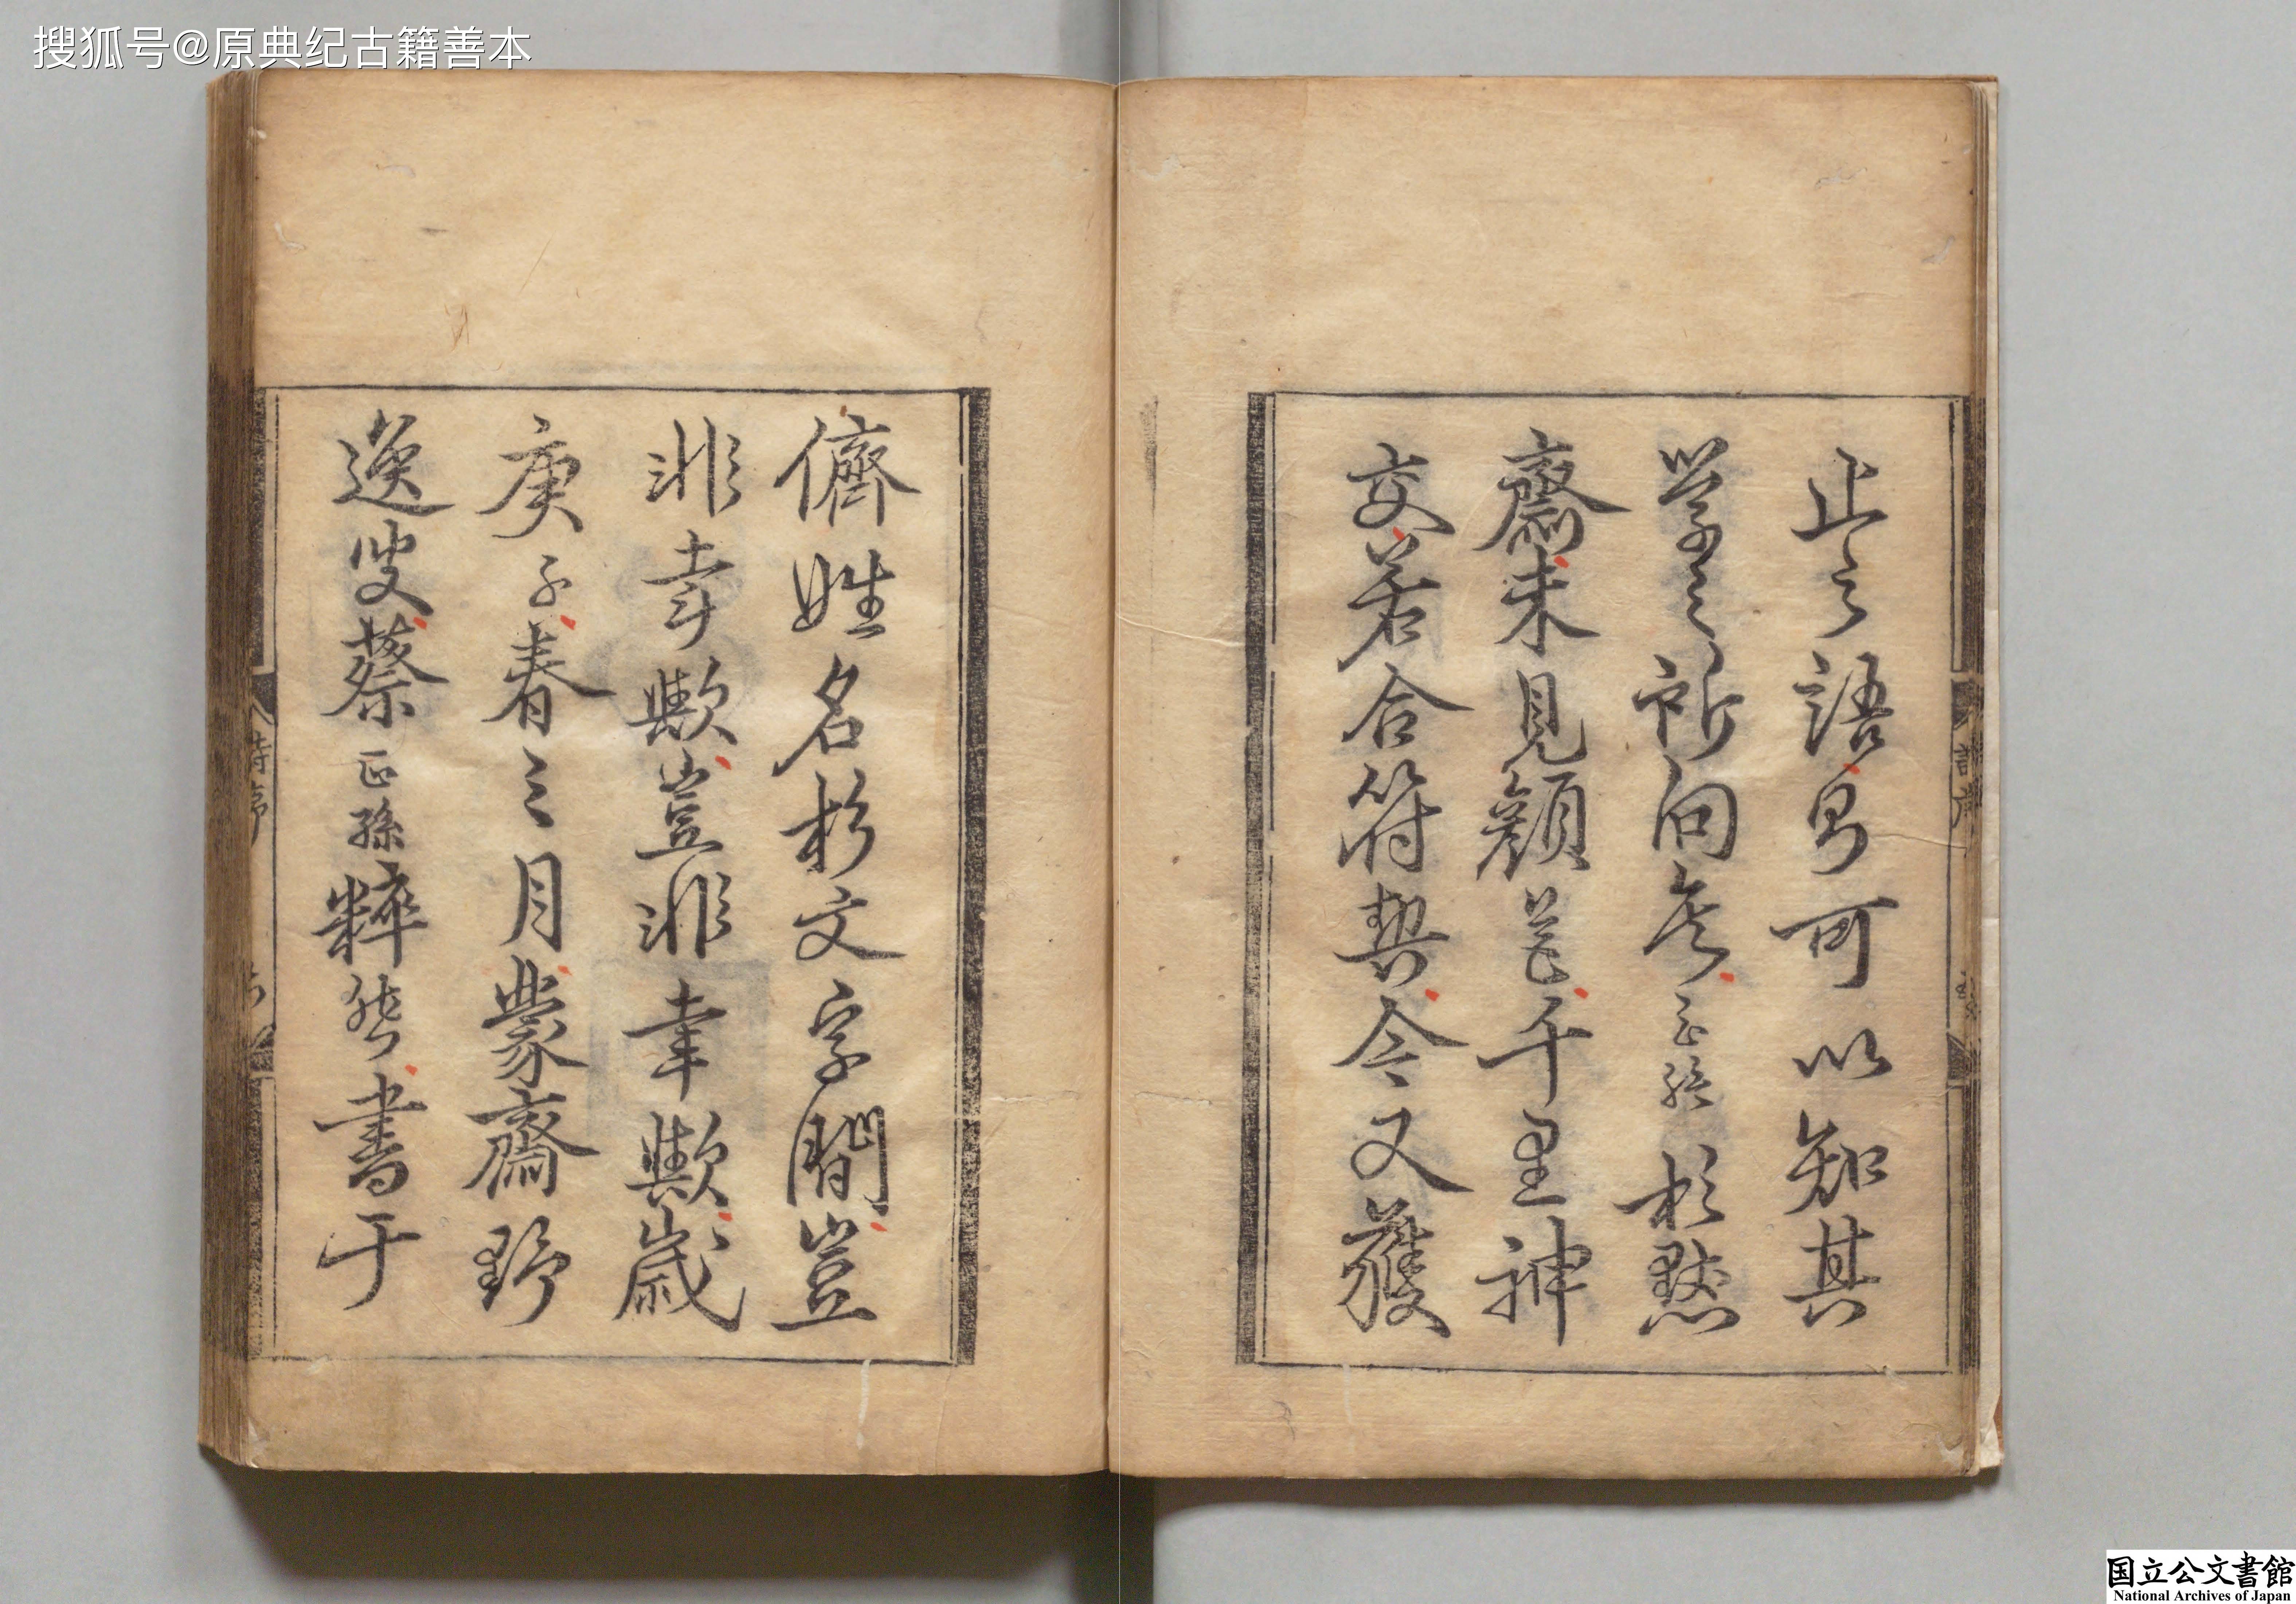 搜狐号@原典纪古籍善本
止之語可以知其
學之所向矣正孫於黙
齋未見顔色千里神
交若合符契今又獲
儕姓名於文字間豈
非幸歟豈非幸歟歲
庚子春三月蒙齋野
逸叟蔡正孫粹然書于
詩序
国立公文書館
National Archives of Japan